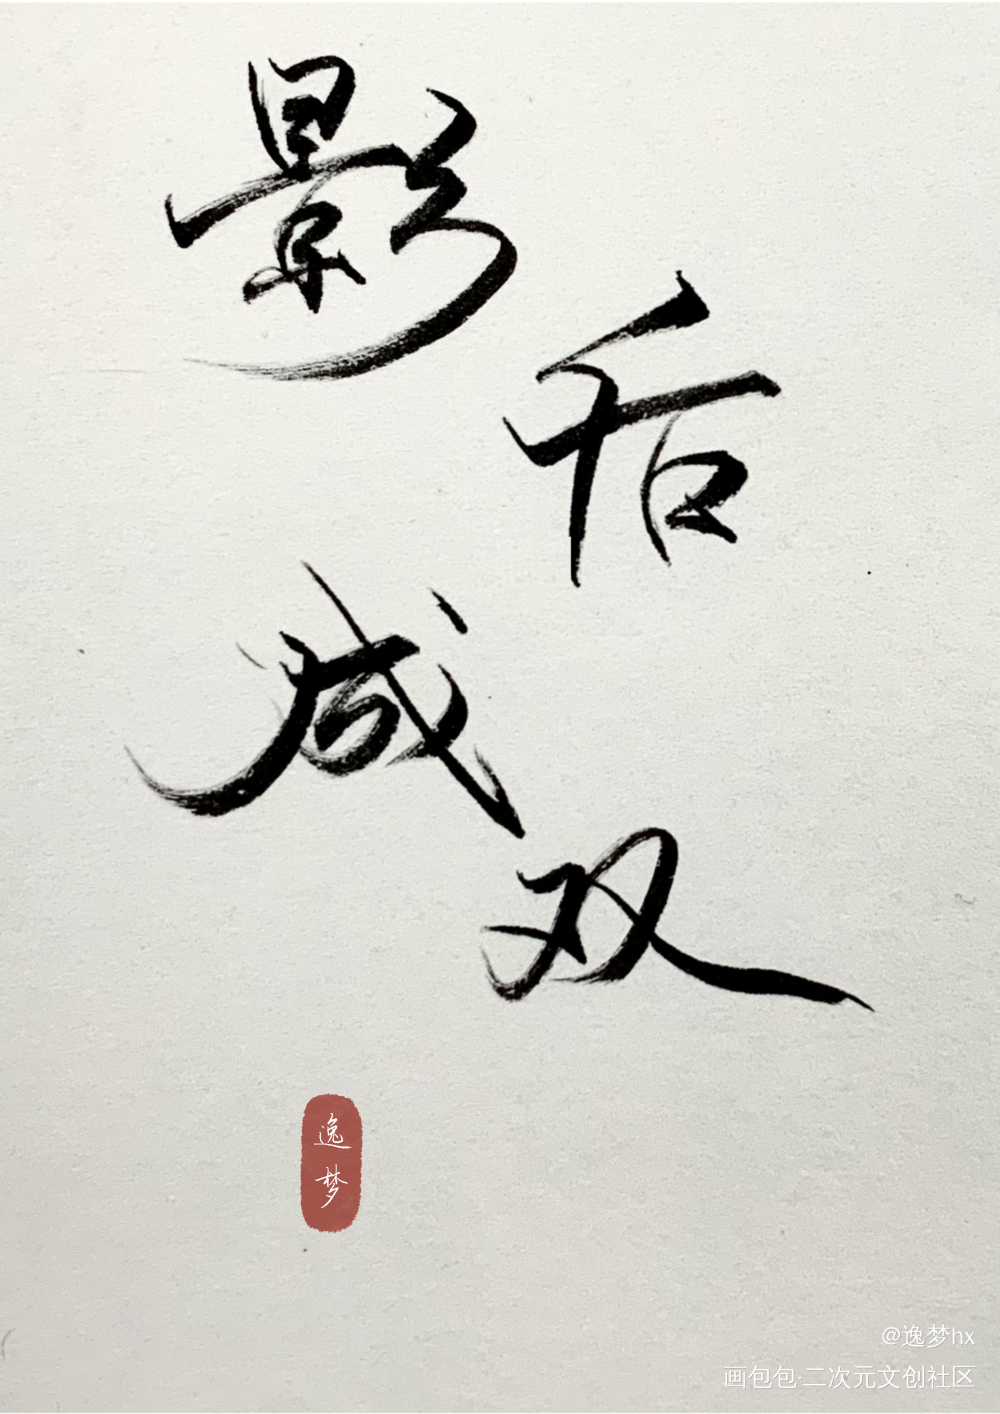 影后
成双
逸梦
@逸梦hx
画包包·二次元文创社区